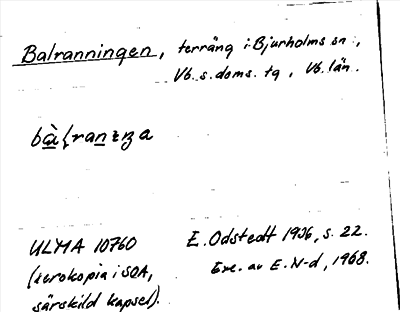 Balranningen, terräng i Bjurholms sn.,
Vb. s. doms. tg, Vb. län.
ULMA 10760
(xerokopia i SOA,
särskild kapsel).
E. Odstedt 1936, s. 22.
Exc. av E. N-d, 1968.